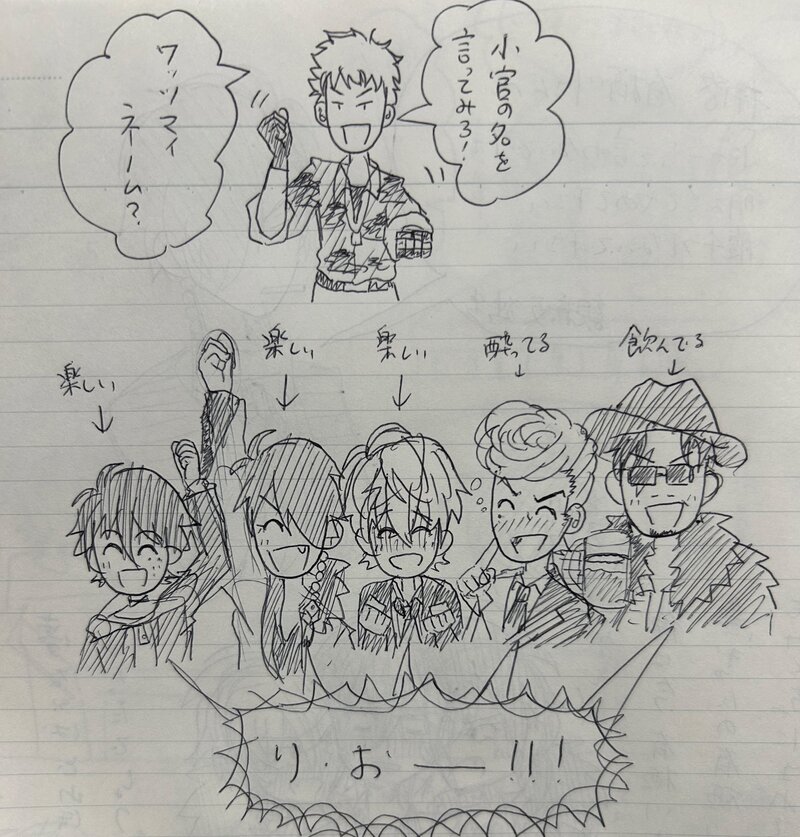 小官の名を
言ってみろ!
ワッツマイ
ネーム?
飲んでる
酔ってる
楽しい
楽しい
楽しい
り・おー!!!